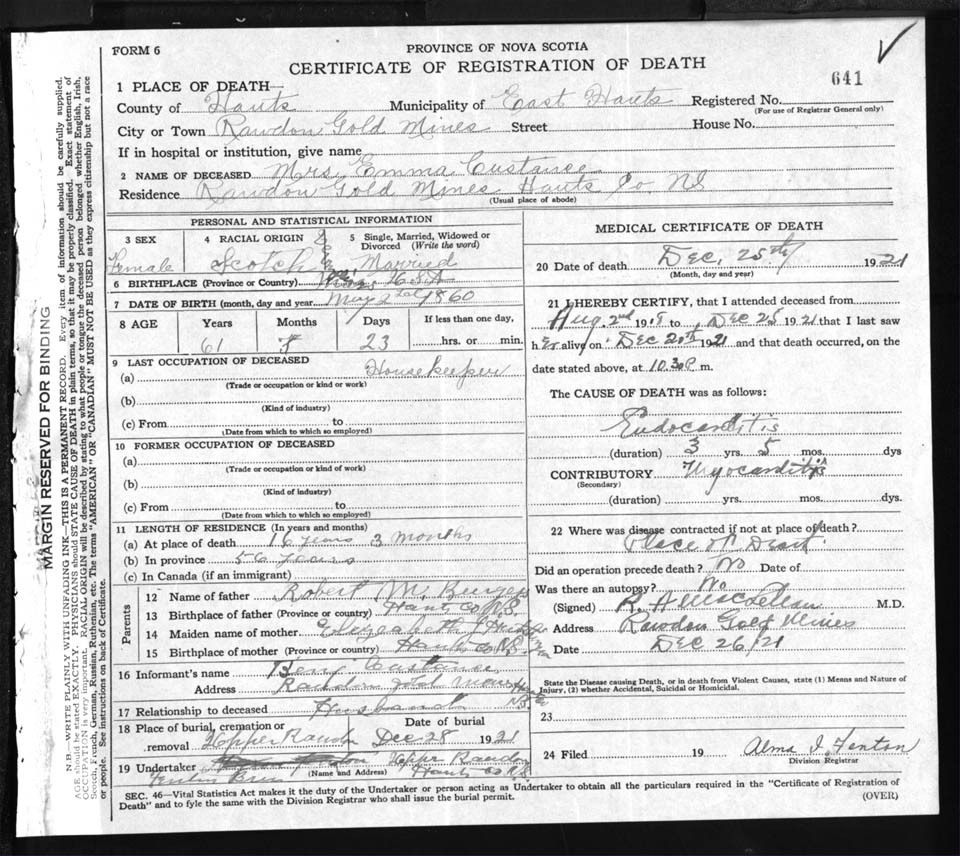 FORM 6
PROVINCE OF NOVA SCOTIA
CERTIFICATE OF REGISTRATION OF DEATH
641
1 PLACE OF DEATH—
County of Hants Municipality of East Hants Registered No.
(For use of Registrar General only)
City or Town Rawdon Gold Mines Street House No.
If in hospital or institution, give name
2 NAME OF DECEASED Mrs. Emma Custance
Residence Rawdon Gold Mines Hants Co. NS
(Usual place of abode)
PERSONAL AND STATISTICAL INFORMATION
3 SEX 4 RACIAL ORIGIN 5 Single, Married, Widowed or Divorced (Write the word)
Female Scotch Married
6 BIRTHPLACE (Province or Country) Mass. USA
7 DATE OF BIRTH (month, day and year) May 2nd 1860
8 AGE Years Months Days If less than one day,
61 23 hrs. or min.
9 LAST OCCUPATION OF DECEASED
(a) Housekeeper
(Trade or occupation or kind or work)
(b)
(Kind of industry)
(c) From to
(Date from which to which so employed)
10 FORMER OCCUPATION OF DECEASED
(a)
(Trade or occupation or kind of work)
(b)
(Kind of industry)
(c) From to
(Date from which to which so employed)
11 LENGTH OF RESIDENCE (In years and months)
(a) At place of death 16 years 3 months
(b) In province 56 years
(c) In Canada (if an immigrant)
Parents
12 Name of father Robert M. Burgess
13 Birthplace of father (Province or country) Hants Co N.S.
14 Maiden name of mother Elizabeth J
15 Birthplace of mother (Province or country) Hants Co N.S.
16 Informant's name Benj Custance
Address Rawdon Gold Mines
17 Relationship to deceased Husband
18 Place of burial, cremation or removal Upper Rawdon Date of burial Dec 28 1921
19 Undertaker Upper Rawdon
(Name and Address) Hants Co N.S.
MEDICAL CERTIFICATE OF DEATH
20 Date of death Dec. 25th 1921
(Month, day and year)
21 I HEREBY CERTIFY, that I attended deceased from
Aug. 2nd 191 to Dec 25 1921 that I last saw
her alive on Dec 1921 and that death occurred, on the
date stated above, at 10.30 P m.
The CAUSE OF DEATH was as follows:
Endocarditis
(duration) 3 yrs. 5 mos. dys
CONTRIBUTORY Myocarditis
(Secondary)
(duration) yrs. mos. dys.
22 Where was disease contracted if not at place of death?
Place of Death
Did an operation precede death? No Date of
Was there an autopsy? No
(Signed) M.D.
Address Rawdon Gold Mines
Date Dec 26/21
State the Disease causing Death, or in death from Violent Causes, state (1) Means and Nature of Injury, (2) whether Accidental, Suicidal or Homicidal.
23
24 Filed 19 Alma J. Fenton
Division Registrar
SEC. 46—Vital Statistics Act makes it the duty of the Undertaker or person acting as Undertaker to obtain all the particulars required in the "Certificate of Registration of
Death" and to fyle the same with the Division Registrar who shall issue the burial permit.
(OVER)
MARGIN RESERVED FOR BINDING
N.B.—WRITE PLAINLY WITH UNFADING INK—THIS IS A PERMANENT RECORD. Every item of information should be carefully supplied.
AGE should be stated EXACTLY. PHYSICIANS should STATE CAUSE OF DEATH in plain terms, so that it may be properly classified. Exact statement of
OCCUPATION is very important. RACIAL ORIGIN will be described by stating to what people or tongue the deceased person belonged whether English, Irish,
Scotch, French, German, Russian, Ruthenian, etc. The terms "AMERICAN" OR "CANADIAN" MUST NOT BE USED as they express citizenship but not a race
or people. See instructions on back of Certificate.